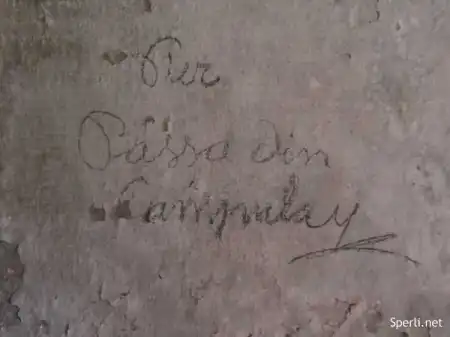 Per
Passa din
Campulay
Sperli.net